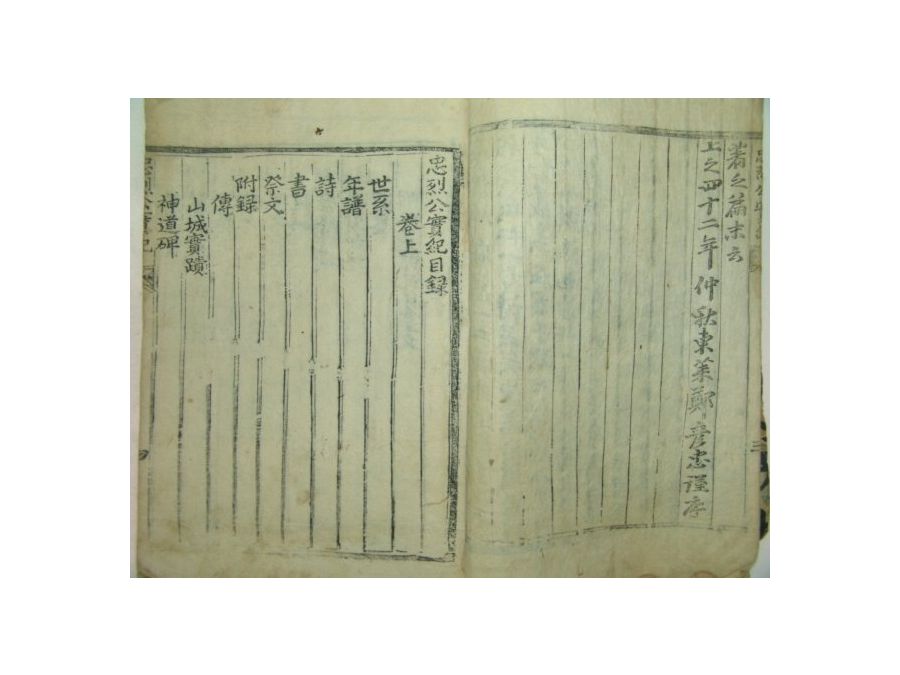 著之篇末云
上之四十二年仲秋東萊鄭彦忠謹序
忠烈公實紀目録
卷上
世系
年譜
詩
書
祭文
附録
傳
山城實蹟
神道碑
忠烈公實紀